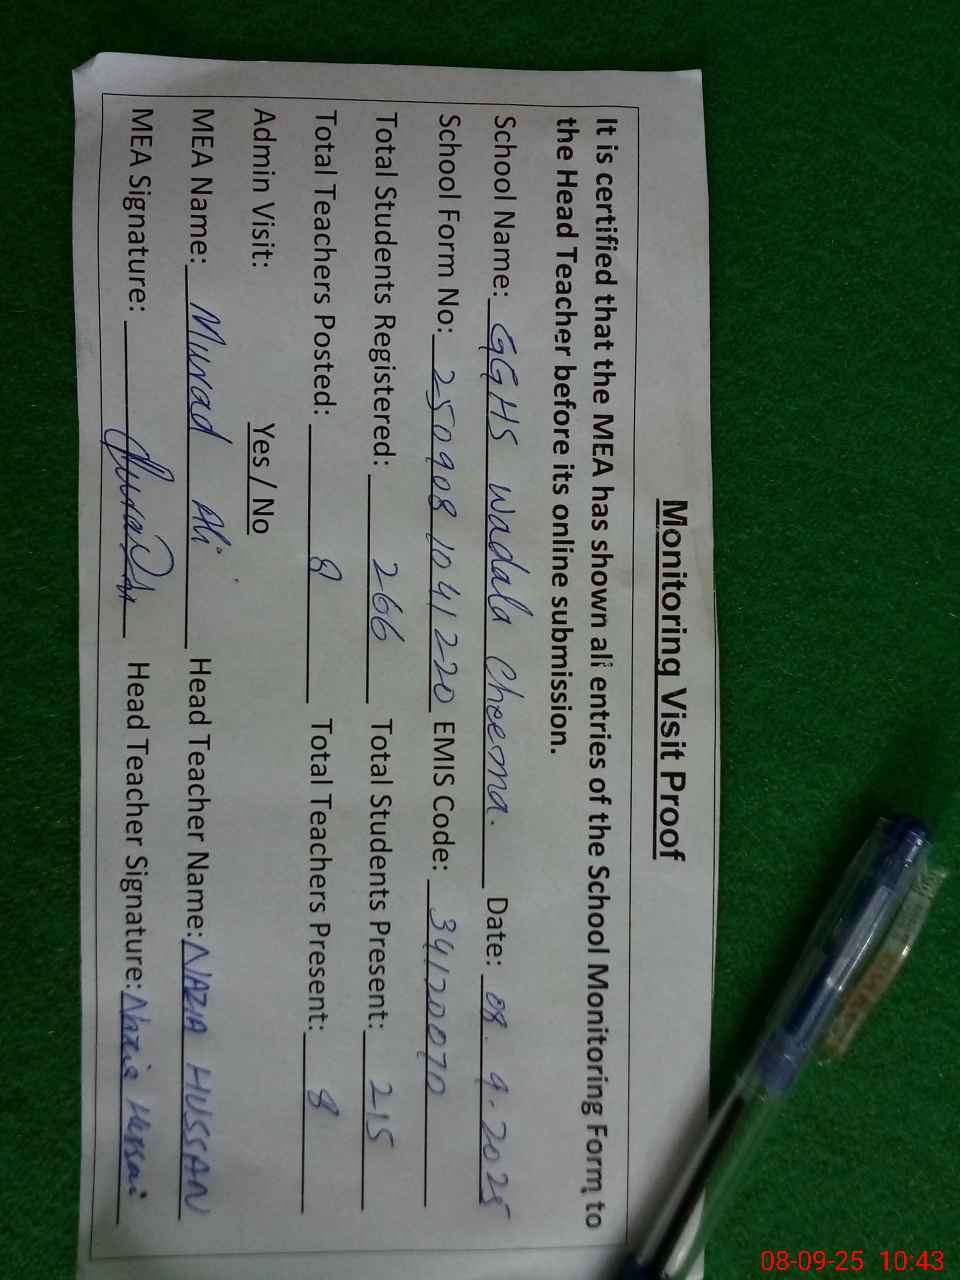 Monitoring Visit Proof
It is certified that the MEA has shown all entries of the School Monitoring Form to
the Head Teacher before its online submission.
School Name: GGHS Wadala Cheema. Date: 08. 9. 2025
School Form No: 250908 1041220 EMIS Code: 34120070
Total Students Registered: 266 Total Students Present: 215
Total Teachers Posted: 8 Total Teachers Present: 8
Admin Visit: Yes / No
MEA Name: Murad Ali Head Teacher Name: NAZIA HUSSAN
MEA Signature: Head Teacher Signature: Nazia Hussain
08-09-25 10:43